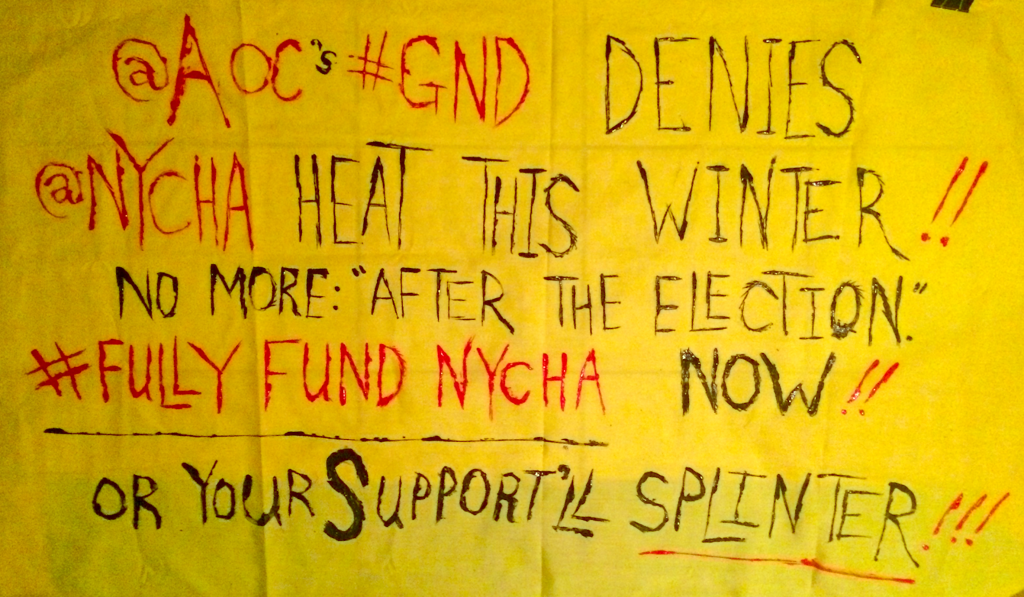 @AOC's #GND DENIES
@NYCHA HEAT THIS WINTER!!
NO MORE: "AFTER THE ELECTION."
#FULLY FUND NYCHA NOW!!
OR YOUR SUPPORT'LL SPLINTER!!!